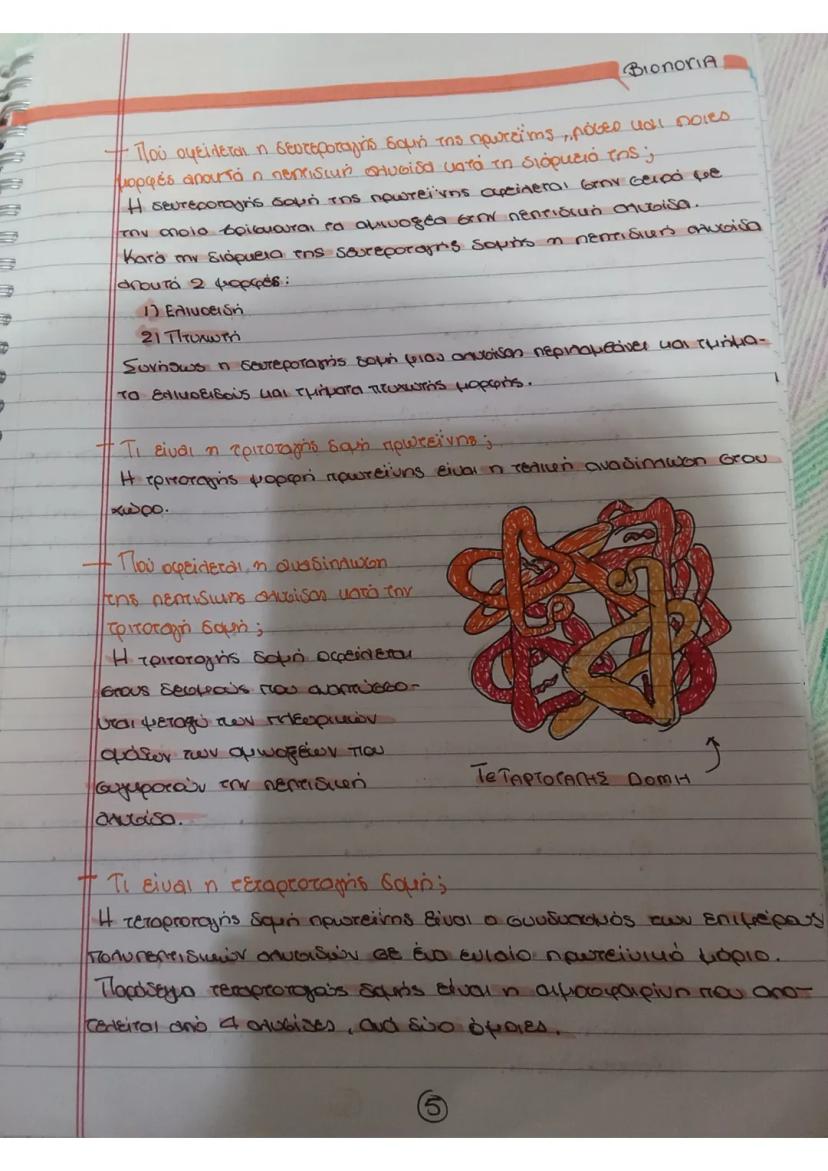 ΒΙΟΛΟΓΙΑ
Πού οφείλεται η δευτεροταγής δομή της πρωτεΐνης, πόσες και ποιες
μορφές αποκτά η πεπτιδική αλυσίδα κατά τη διάρκειά της;
Η δευτεροταγής δομή της πρωτεΐνης οφείλεται στην σειρά με
την οποία βρίσκονται τα αμινοξέα στην πεπτιδική αλυσίδα.
Κατά την διάρκεια της δευτεροταγής δομής η πεπτιδική αλυσίδα
αποκτά 2 μορφές:
1) Ελικοειδή
2) Πτυχωτή
Συνήθως η δευτεροταγής δομή μιας αλυσίδας περιλαμβάνει και τμήμα-
τα ελικοειδούς και τμήματα πτυχωτής μορφής.
Τι είναι η τριτοταγής δομή πρωτεΐνης;
Η τριτοταγής μορφή πρωτεΐνης είναι η τελική αναδίπλωση στον
χώρο.
Πού οφείλεται η αναδίπλωση
της πεπτιδικής αλυσίδας κατά την
τριτοταγή δομή;
Η τριτοταγής δομή οφείλεται
στους δεσμούς που αναπτύσσο-
νται μεταξύ των πλευρικών
ομάδων των αμινοξέων που
συγκροτούν την πεπτιδική
αλυσίδα.
ΤΕΤΑΡΤΟΤΑΓΗΣ ΔΟΜΗ
Τι είναι η τεταρτοταγής δομή;
Η τεταρτοταγής δομή πρωτεΐνης είναι ο συνδυασμός των επιμέρους
πολυπεπτιδικών αλυσίδων σε ένα ενιαίο πρωτεϊνικό μόριο.
Παράδειγμα τεταρτοταγούς δομής είναι η αιμοσφαιρίνη που απο-
τελείται από 4 αλυσίδες, ανά δύο όμοιες.
5